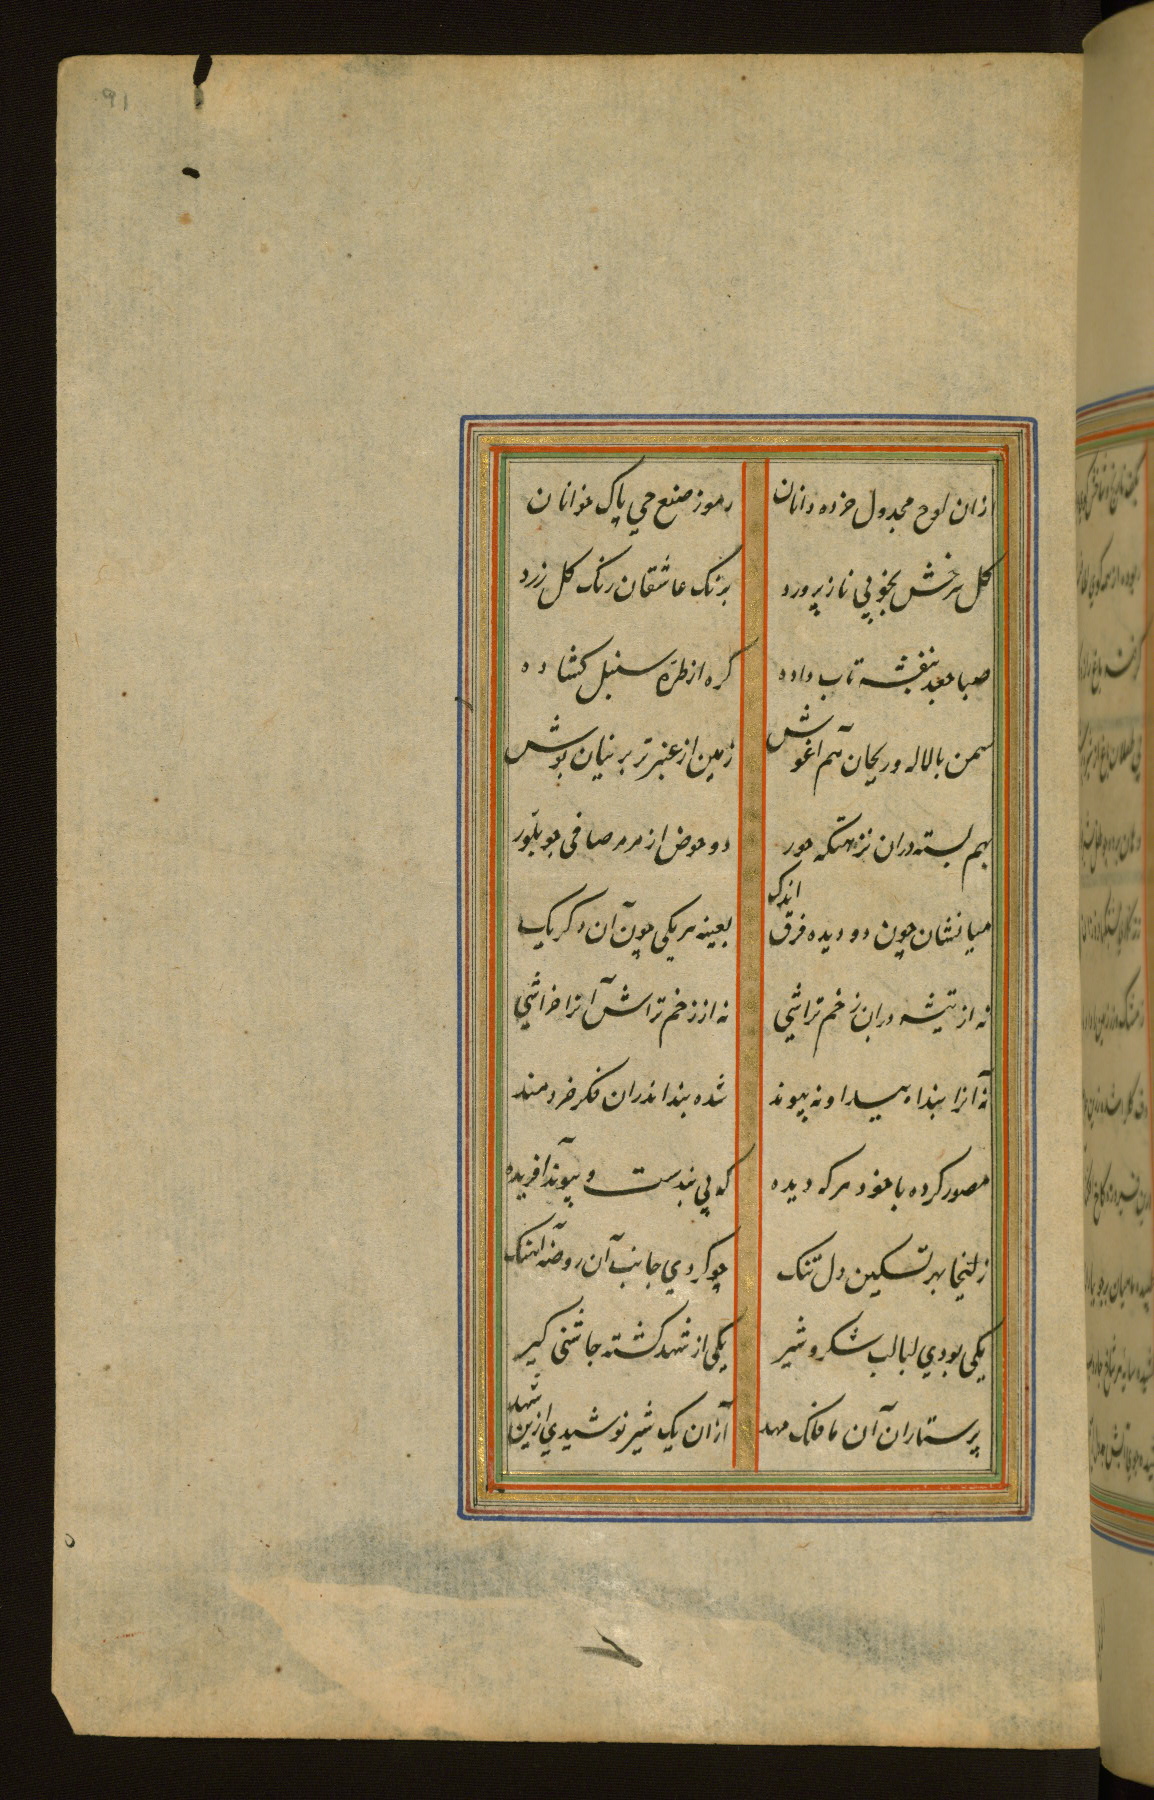 91
ازان لوح مجدول خرده دانان
رموز صنع حي پاک خوانان
کل سرخش بخوبي ناز پرورد
برنک عاشقان رنک کل زرد
صبا جعد بنفشه تاب داده
کره از طره سنبل کشاده
سمن بالاله و ريحان هم اغوش
زمين از عنبر تر پرنيان پوش
بهم بسته دران نزهتکه حور
دو حوض از مرمر صافي چو بلور
ميانشان چون دو ديده فرق اندک
بعينه هر يکي چون آن دکر يک
نه از تيشه دران زخم تراشي
نه از زخم تراش آنرا خراشي
نه آنرا بند پيدا و نه پيوند
شده بند اندران فکر خردمند
مصور کرده با خود هر که ديده
که بي بندست و پيوند افريده
زليخا بهر تسکين دل تنک
چو کردي جانب آن روضه اهنک
يکي بودي لبالب شکر و شير
يکي از شهد کشته چاشني کير
پرستاران آن ماه فلک مهد
ازان يک شير نوشيدي ازين شهد